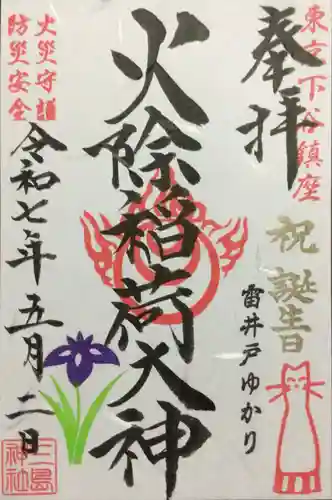 東京下谷鎮座
奉拝
祝誕告
雷井戸ゆかり
火除稲荷大神
火災守護
防災安全
令和七年五月二日
三島神社